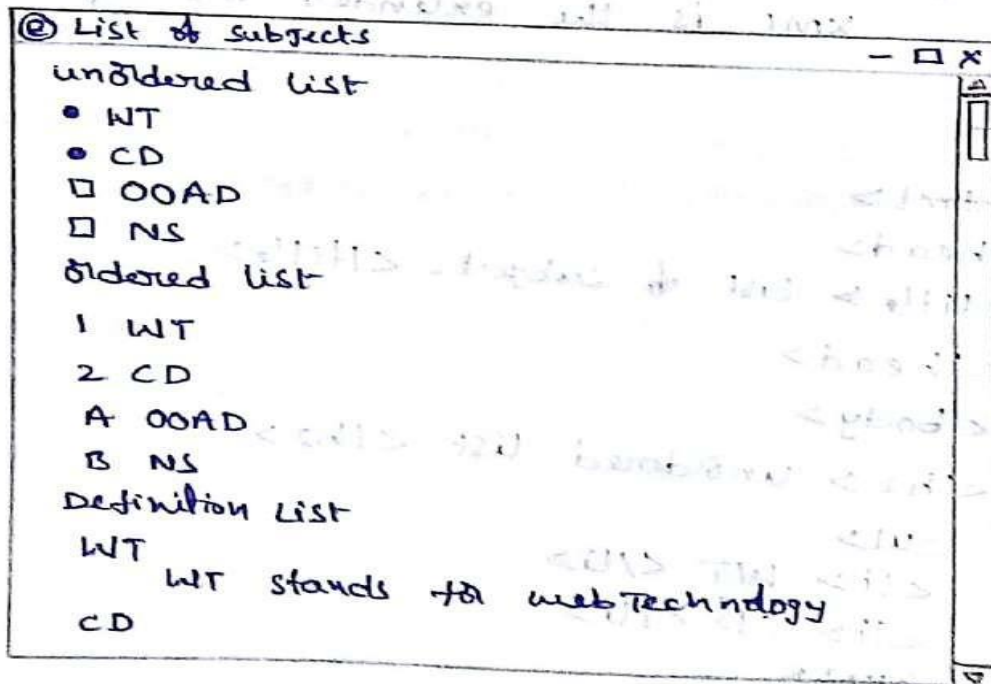 ⓔ List of subjects
- □ x
unordered list
• WT
• CD
□ OOAD
□ NS
ordered list
1 WT
2 CD
A OOAD
B NS
Definition List
WT
WT stands for web Technology
CD